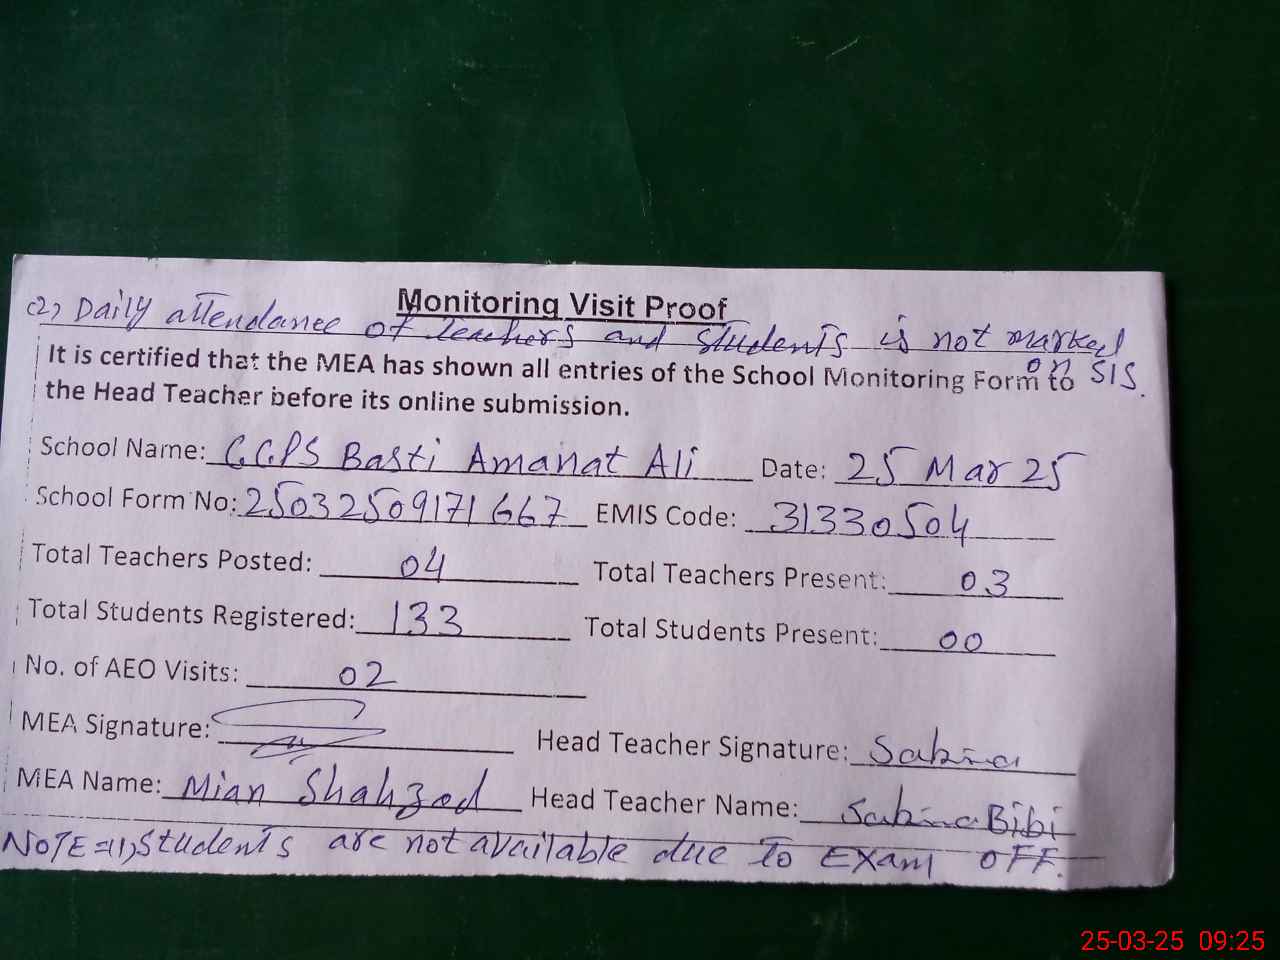 Monitoring Visit Proof
(2) Daily attendance of teachers and students is not marked
on SIS.
It is certified that the MEA has shown all entries of the School Monitoring Form to
the Head Teacher before its online submission.
School Name: GGPS Basti Amanat Ali Date: 25 Mar 25
School Form No: 25032509171667 EMIS Code: 31330504
Total Teachers Posted: 04 Total Teachers Present: 03
Total Students Registered: 133 Total Students Present: 00
No. of AEO Visits: 02
MEA Signature: Head Teacher Signature: Sabina
MEA Name: Mian Shahzad Head Teacher Name: Sabina Bibi
NOTE=(1), Students are not available due To Exam OFF.
25-03-25 09:25